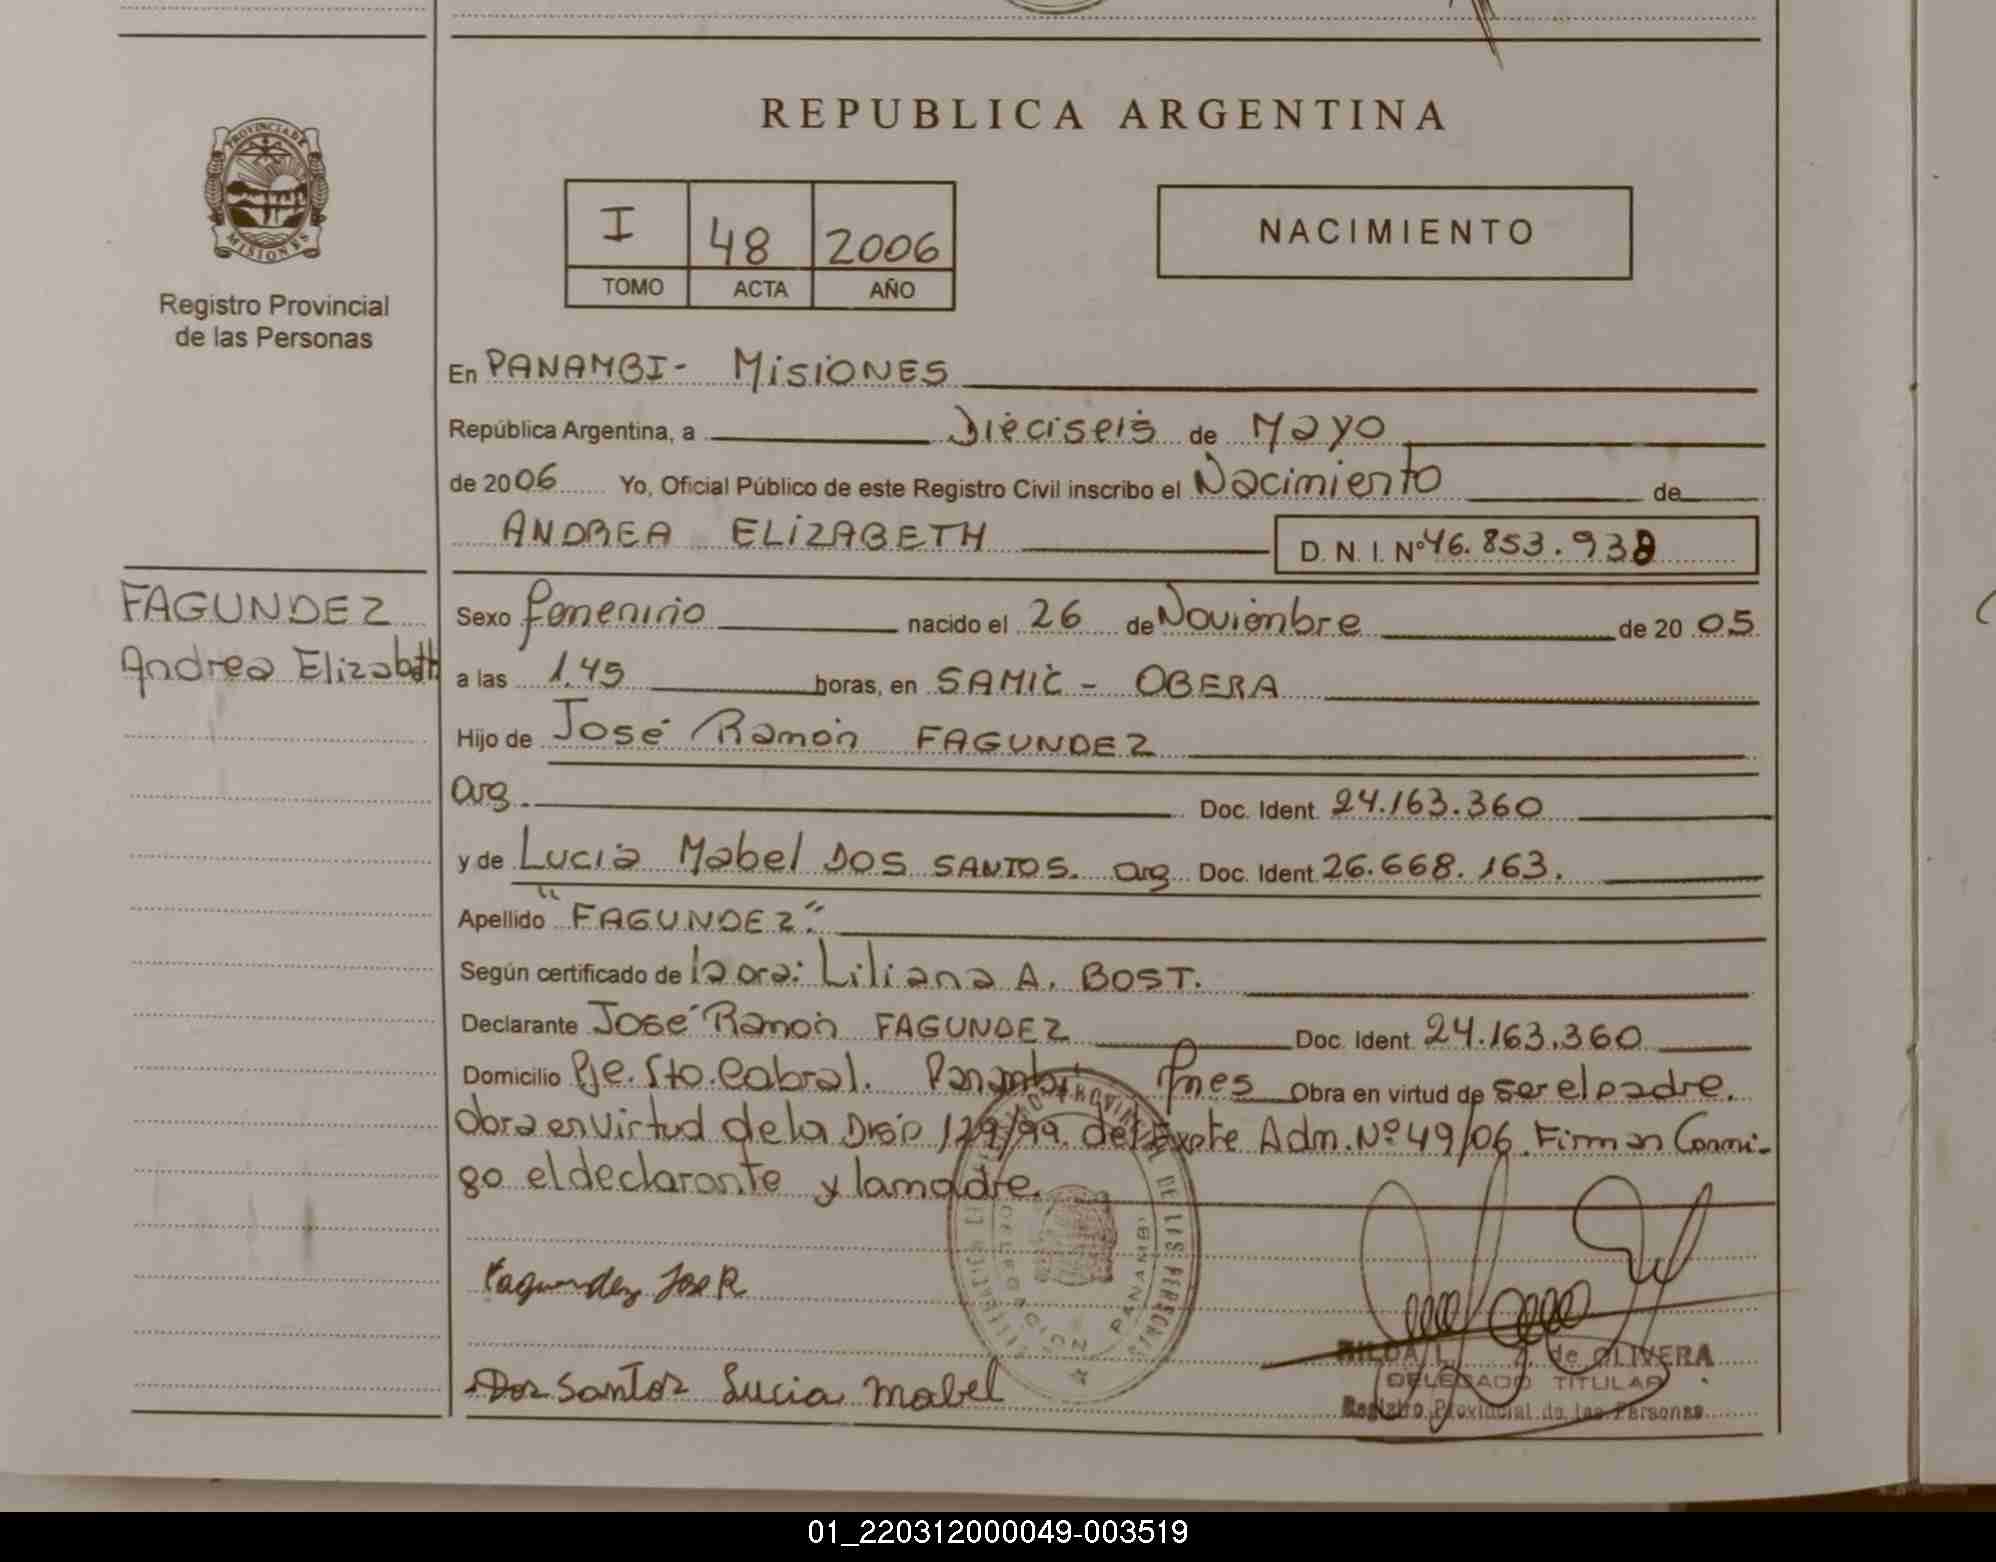 REPUBLICA ARGENTINA
PROVINCIA DE
MISIONES
Registro Provincial
de las Personas
I 48 2006
TOMO ACTA AÑO
NACIMIENTO
En PANAMBI- MisiONES
República Argentina, a Dieciseis de Mayo
de 2006 Yo, Oficial Público de este Registro Civil inscribo el Nacimiento de
ANDREA ELIZABETH D. N. I. Nº 46.853.938
FAGUNDEZ
Andrea Elizabeth
Sexo femenino nacido el 26 de Noviembre de 2005
a las 1.45 horas, en SAMIC - OBERA
Hijo de José Ramón FAGUNDEZ
arg. Doc. Ident. 24.163.360
y de Lucia Mabel DOS SANTOS. arg Doc. Ident. 26.668.163.
Apellido "FAGUNDEZ"
Según certificado de la Liliana A. BOST.
Declarante José Ramón FAGUNDEZ Doc. Ident. 24.163.360
Domicilio Pje. Sto. Cabral. Panambi Mnes Obra en virtud de ser el padre.
Obra en virtud de la 129/99. del Expte Adm. Nº 49/06. Firman Conmi-
go el declarante y la madre.
Fagundez Jose R
Dos Santos Lucia Mabel
REGISTRO PROVINCIAL DE LAS PERSONAS
DELEGACION PANAMBI
HILDA L. Z. de OLIVERA
DELEGADO TITULAR
Registro Provincial de las Personas
01_220312000049-003519